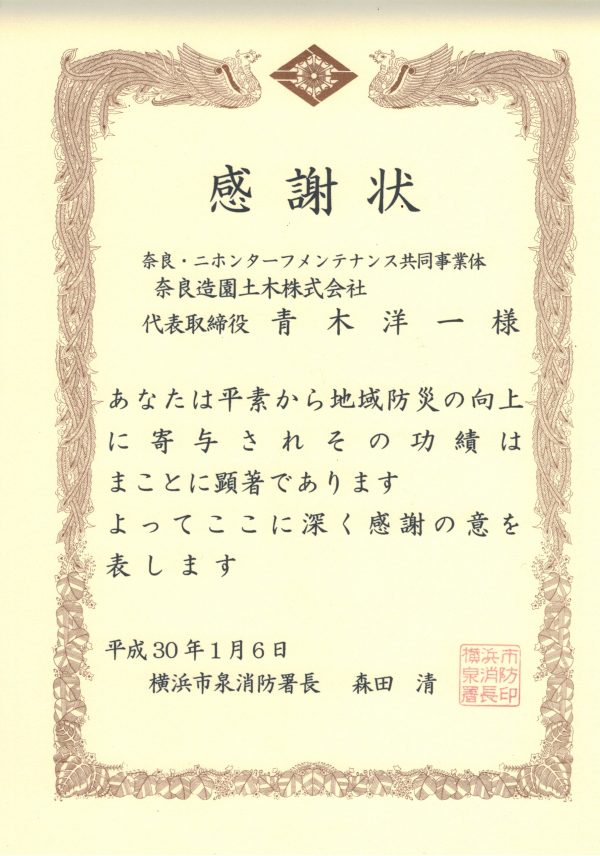 感謝状
奈良・ニホンターフメンテナンス共同事業体
奈良造園土木株式会社
代表取締役 青木洋一様
あなたは平素から地域防災の向上
に寄与されその功績は
まことに顕著であります
よってここに深く感謝の意を
表します
平成30年1月6日
横浜市泉消防署長 森田 清
横浜市
泉消防
署長印